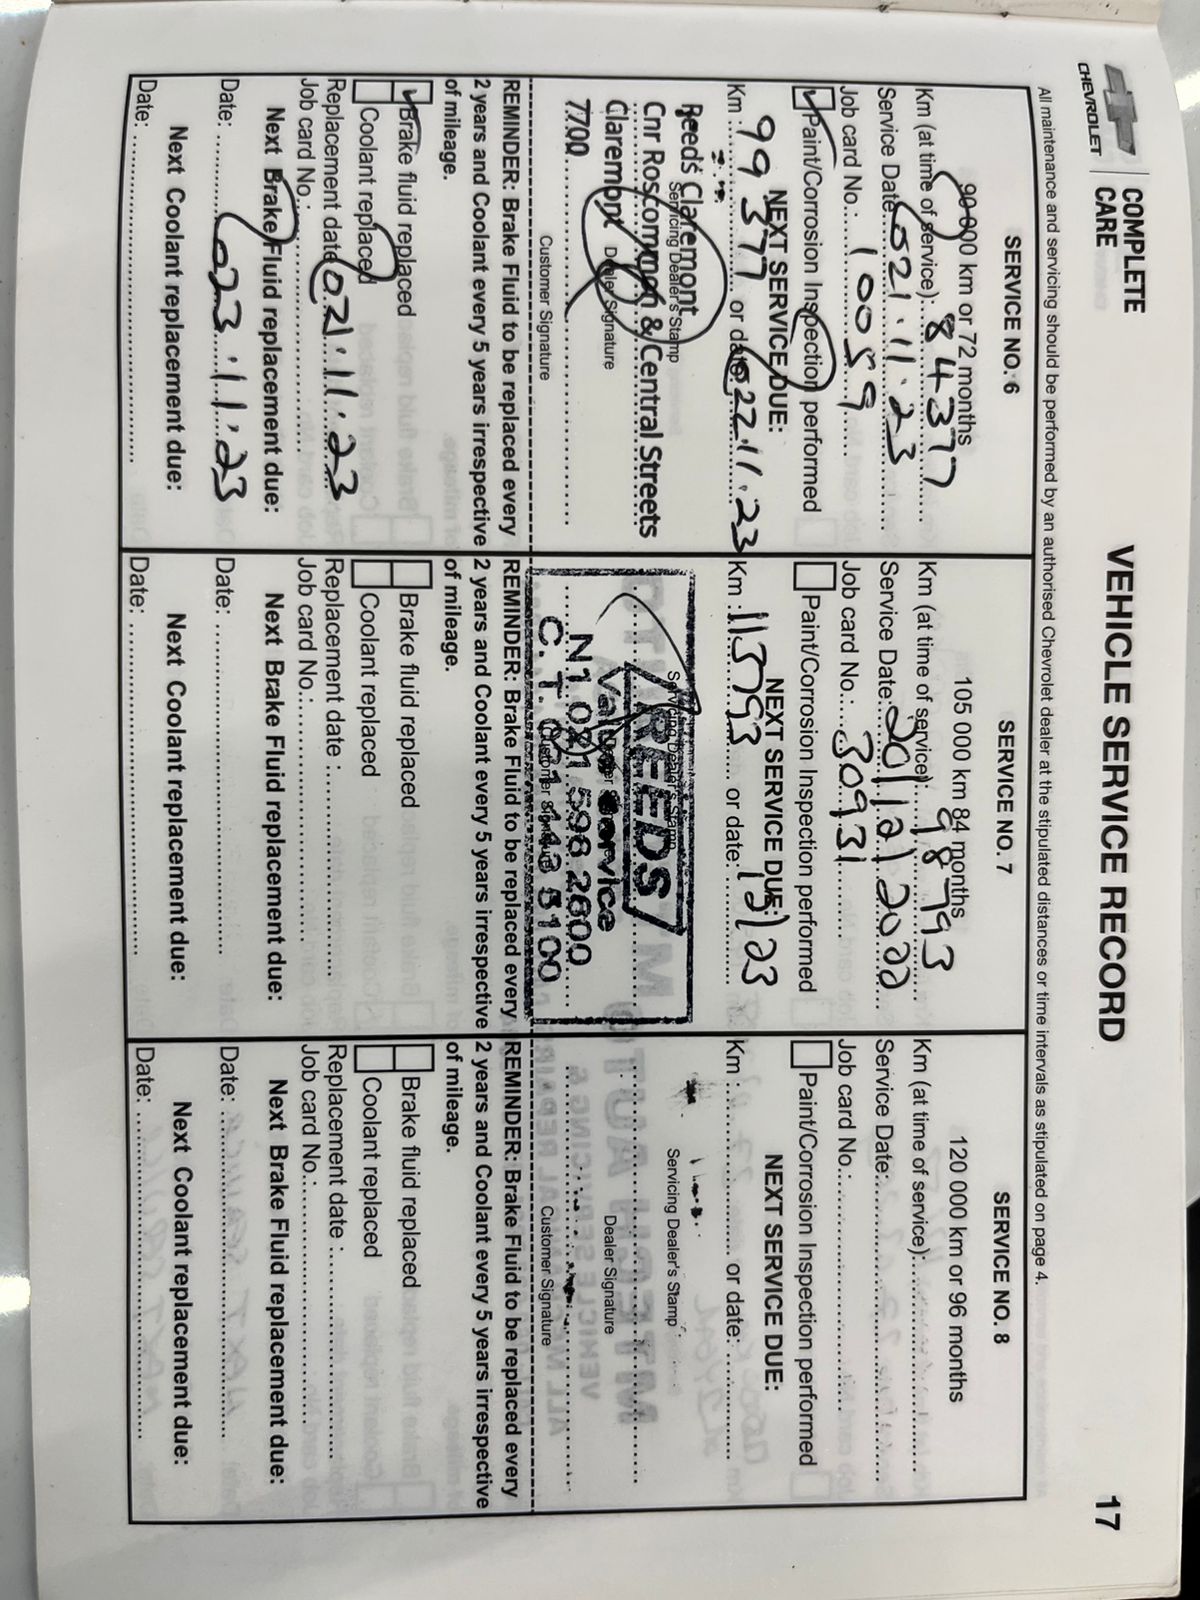 CHEVROLET
COMPLETE
CARE
VEHICLE SERVICE RECORD
17
All maintenance and servicing should be performed by an authorised Chevrolet dealer at the stipulated distances or time intervals as stipulated on page 4.
SERVICE NO. 6
90 000 km or 72 months
Km (at time of service): 84377
Service Date: 021.11.23
Job card No.: 10059
Paint/Corrosion Inspection performed
NEXT SERVICE DUE:
Km: 99377 or date: 022.11.23
Reeds Claremont
Servicing Dealer's Stamp
Cnr Roscommon & Central Streets
Claremont
Dealer Signature
7700
Customer Signature
REMINDER: Brake Fluid to be replaced every
2 years and Coolant every 5 years irrespective
of mileage.
Brake fluid replaced
Coolant replaced
Replacement date 021.11.23
Job card No.:
Next Brake Fluid replacement due:
Date: 023.11.23
Next Coolant replacement due:
Date:
SERVICE NO. 7
105 000 km 84 months
Km (at time of service): 98793
Service Date: 20/12/2022
Job card No.: 30931
Paint/Corrosion Inspection performed
NEXT SERVICE DUE:
Km: 113793 or date: 12/23
Servicing Dealer's Stamp
REEDS
Value Service
N1 021 598 2600
C.T.
Customer Signature
REMINDER: Brake Fluid to be replaced every
2 years and Coolant every 5 years irrespective
of mileage.
Brake fluid replaced
Coolant replaced
Replacement date:
Job card No.:
Next Brake Fluid replacement due:
Date:
Next Coolant replacement due:
Date:
SERVICE NO. 8
120 000 km or 96 months
Km (at time of service):
Service Date:
Job card No.:
Paint/Corrosion Inspection performed
NEXT SERVICE DUE:
Km: or date:
Servicing Dealer's Stamp
Dealer Signature
Customer Signature
REMINDER: Brake Fluid to be replaced every
2 years and Coolant every 5 years irrespective
of mileage.
Brake fluid replaced
Coolant replaced
Replacement date:
Job card No.:
Next Brake Fluid replacement due:
Date:
Next Coolant replacement due:
Date: